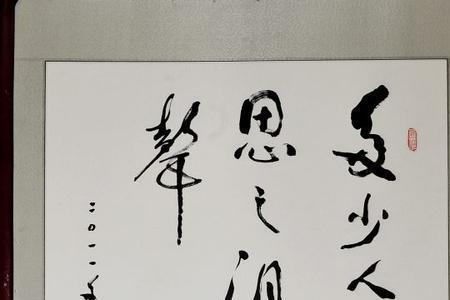 多少人
思之
聲
二〇一一